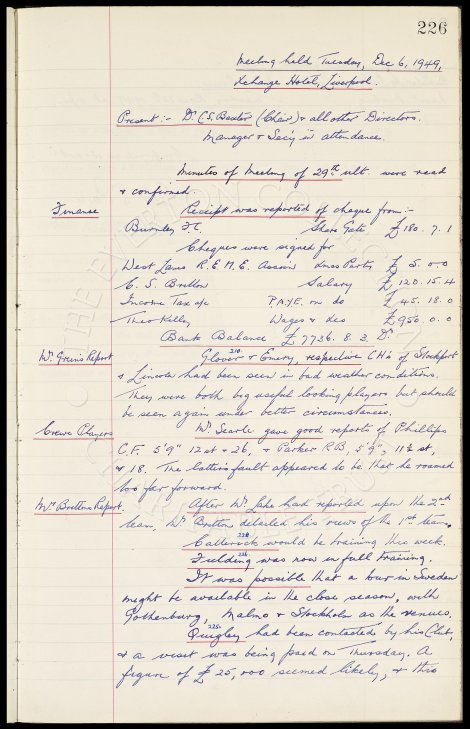 226
Meeting held Tuesday, Dec 6, 1949,
Xchange Hotel, Liverpool.
Present:- Dr. C.S. Baxter (Chair) & all other Directors.
Manager & Sec'y in attendance.
Minutes of Meeting of 29th ult. were read
& confirmed.
Finance Receipt was reported of cheque from:-
Burnley F.C. Share Gate £180. 7. 1
Cheques were signed for
West Lancs R.E.M.E. Assocn Xmas Party £ 5. 0. 0
C. S. Britton Salary £ 120. 15. 4
Income Tax a/c P.A.Y.E. on do £ 45. 18. 0
Theo Kelly Wages & Exes £950. 0. 0
Bank Balance £7736. 8. 3. Dr.
Mr. Green's Report Glover & Emery, respective CH's of Stockport
& Lincoln had been seen in bad weather conditions.
They were both big useful looking players but should
be seen again under better circumstances.
Crewe Players Mr. Searle gave good reports of Phillips
C.F. 5'9" 12 st & 26, & Parker R.B, 5'9", 11½ st,
& 18. The latter's fault appeared to be that he roamed
too far forward.
Mr. Britton's Report. After Mr. Lake had reported upon the 2nd
team, Mr. Britton detailed his views of the 1st team.
Catterick would be training this week.
Fielding was now in full training.
It was possible that a tour in Sweden
might be available in the close season, with
Gothenburg, Malmo & Stockholm as the venues.
Quigley had been contacted by his Club,
& a visit was being paid on Thursday. A
figure of £25,000 seemed likely, & this